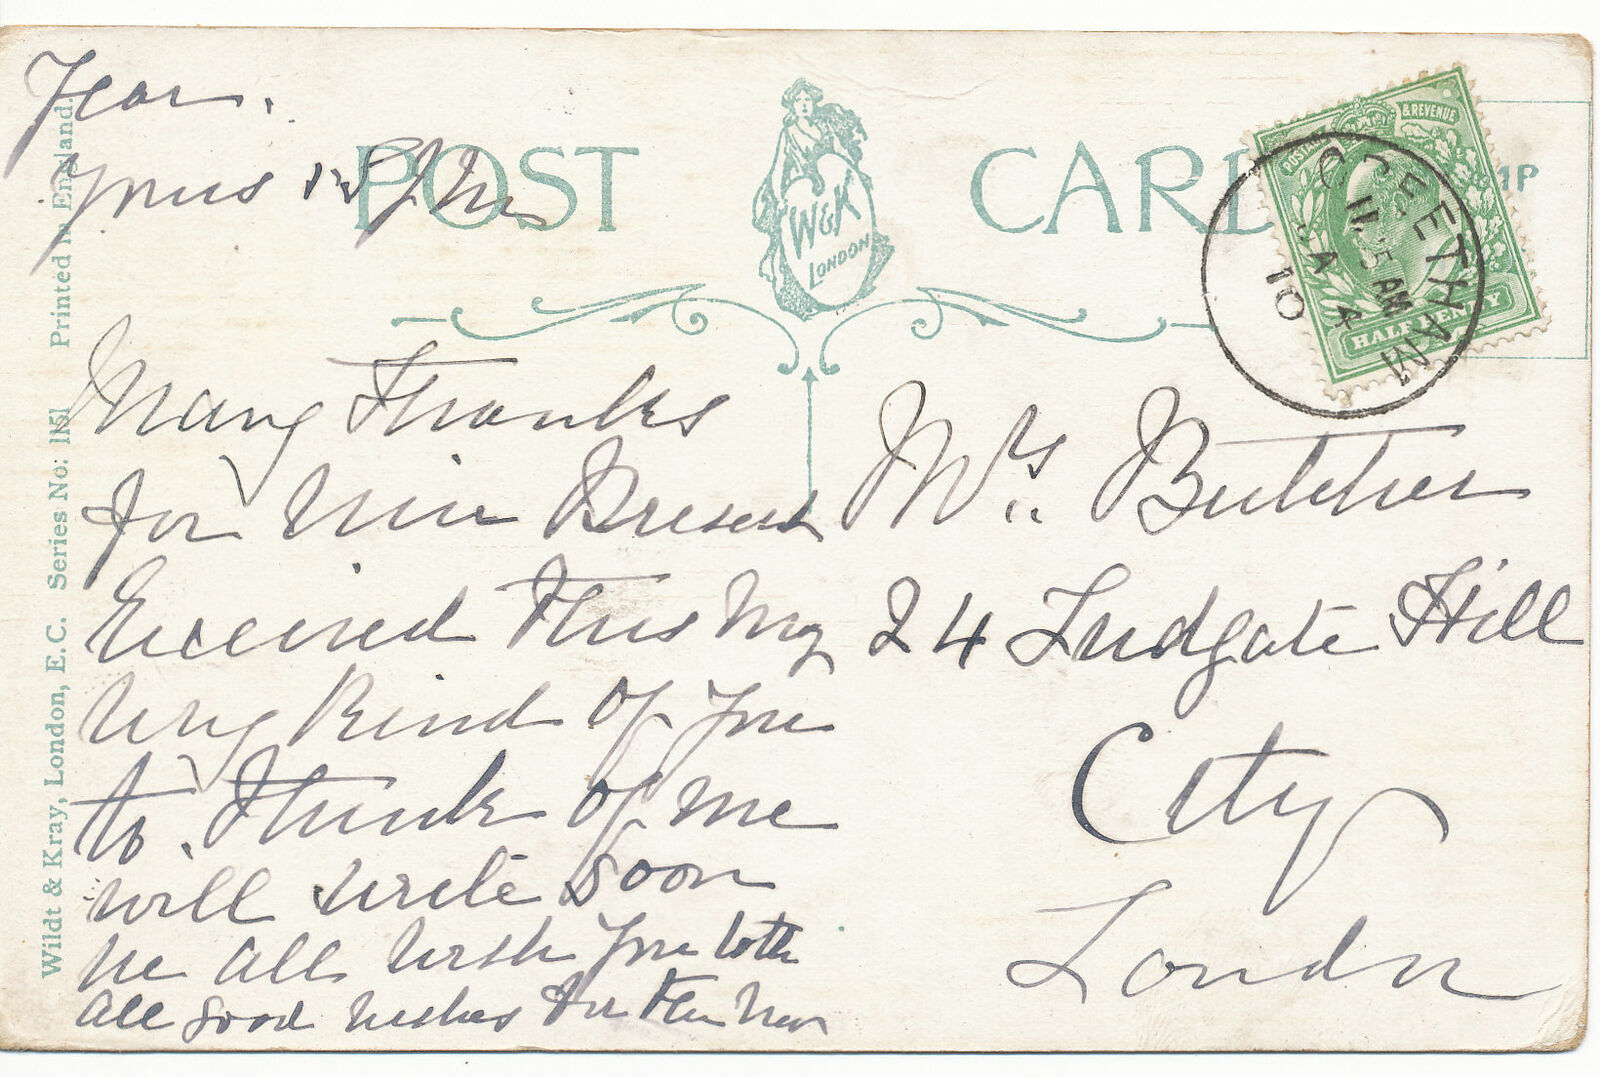 Year.
Yours
POST CARD
W&K
LONDON
POSTAGE & REVENUE
HALFPENNY
CHEETHAM
11.15 AM
JA 4
10
Many Thanks
for Nice Present
Received This Mg
very Kind of you
to. Think of me
will write soon
we all wish you both
all good wishes for the New
Mrs. Butcher
24 Ludgate Hill
City
London
Wildt & Kray, London, E.C. Series No: 1151 Printed in England.